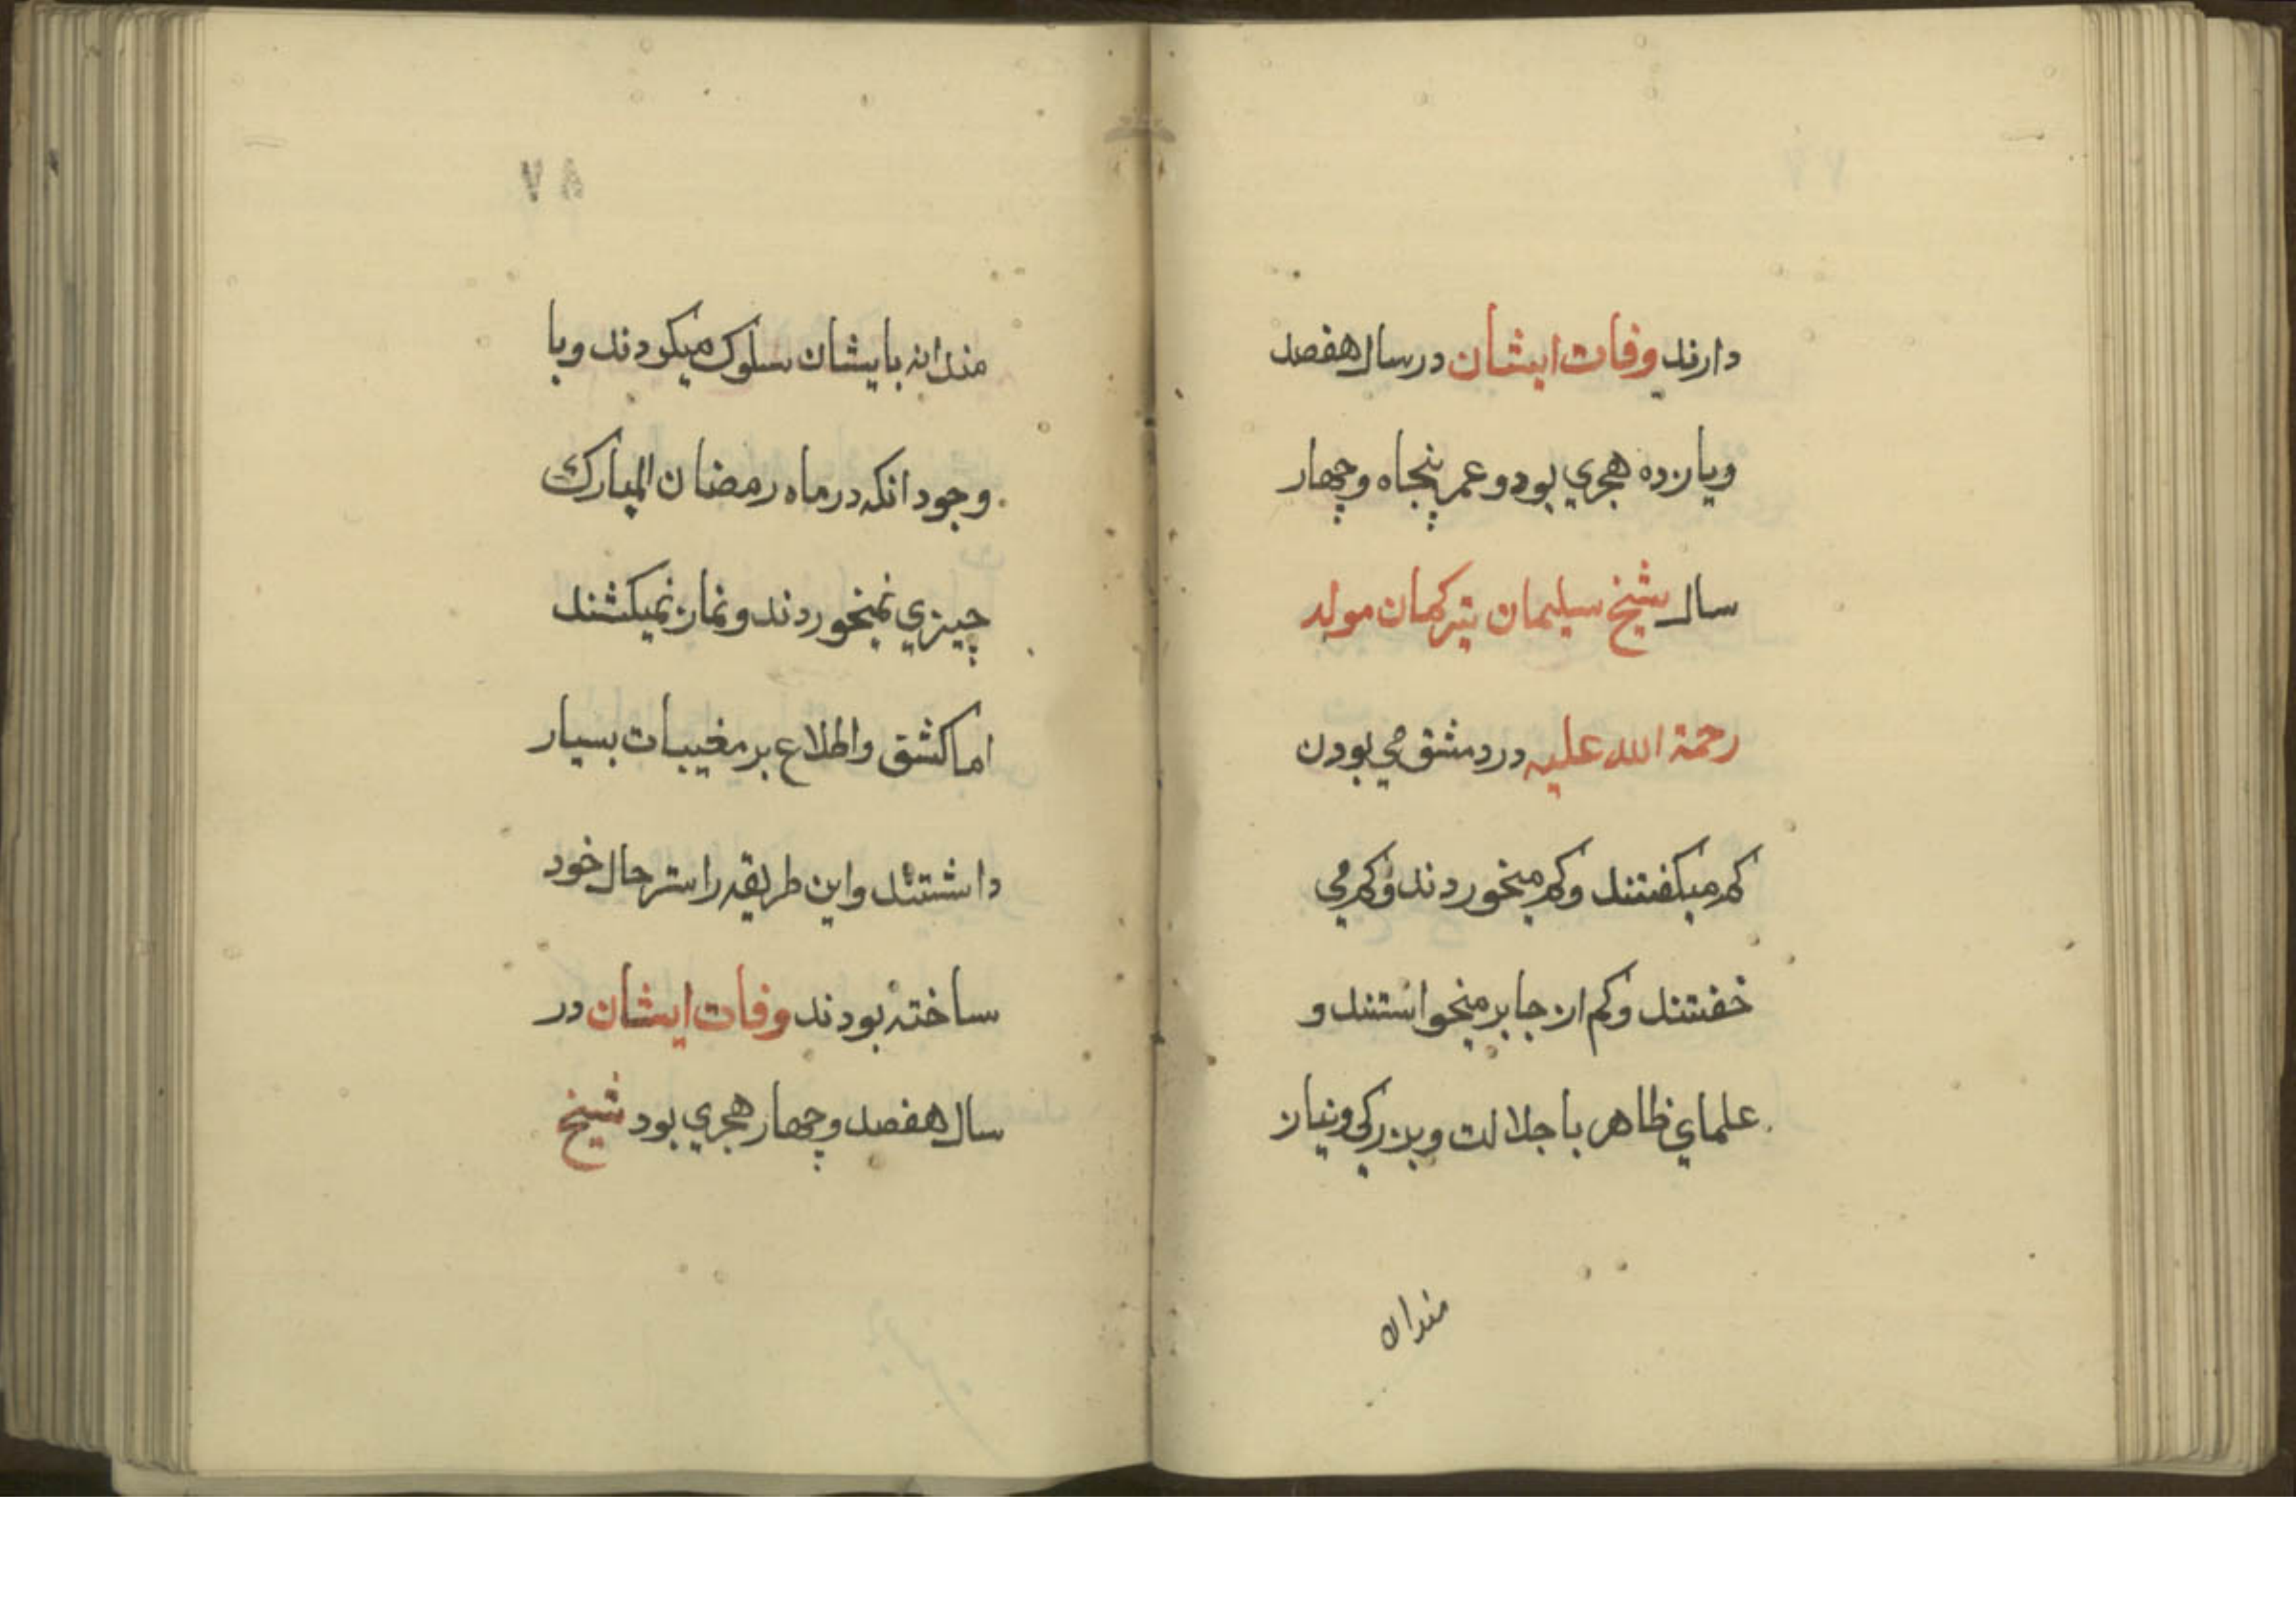 دارند وفات ایشان در سال هفصد
ویازده هجري بود و عمر پنجاه و چهار
سال شیخ سلیمان ترکمان موله
رحمة الله علیه در دمشق مي بودن
کم میکفتند وکم میخوردند وکم مي
خفتند وکم از جا بر میخواستند و
علماي ظاهر با جلالت و بزرکي و نیاز
مندانه
۷۸
مندانه بایشان سلوک میکردند و با
وجود انکه در ماه رمضان المبارک
چیزي نمیخوردند و نماز نمیکشند
اما کشف واطلاع بر مغیبات بسیار
داشتند واین طریقه را ستر حال خود
ساخته بودند وفات ایشان در
سال هفصد و چهار هجري بود شیخ